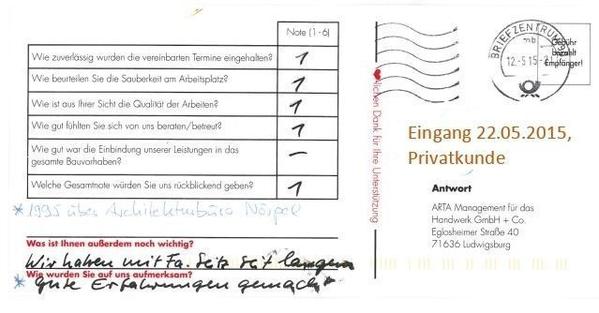 Note (1 - 6)
Wie zuverlässig wurden die vereinbarten Termine eingehalten? 1
Wie beurteilen Sie die Sauberkeit am Arbeitsplatz? 1
Wie ist aus Ihrer Sicht die Qualität der Arbeiten? 1
Wie gut fühlten Sie sich von uns beraten/betreut? 1
Wie gut war die Einbindung unserer Leistungen in das
gesamte Bauvorhaben? –
Welche Gesamtnote würden Sie uns rückblickend geben? 1
* 1995 über Architekturbüro
Was ist Ihnen außerdem noch wichtig?
Wir haben mit Fa. Seitz seit langem
Wie wurden Sie auf uns aufmerksam?
* gute Erfahrungen gemacht
❤lichen Dank für Ihre Unterstützung
BRIEFZENTRUM
12.-5.15
Gebühr
bezahlt
Empfänger!
Eingang 22.05.2015,
Privatkunde
Antwort
ARTA Management für das
Handwerk GmbH + Co.
Eglosheimer Straße 40
71636 Ludwigsburg